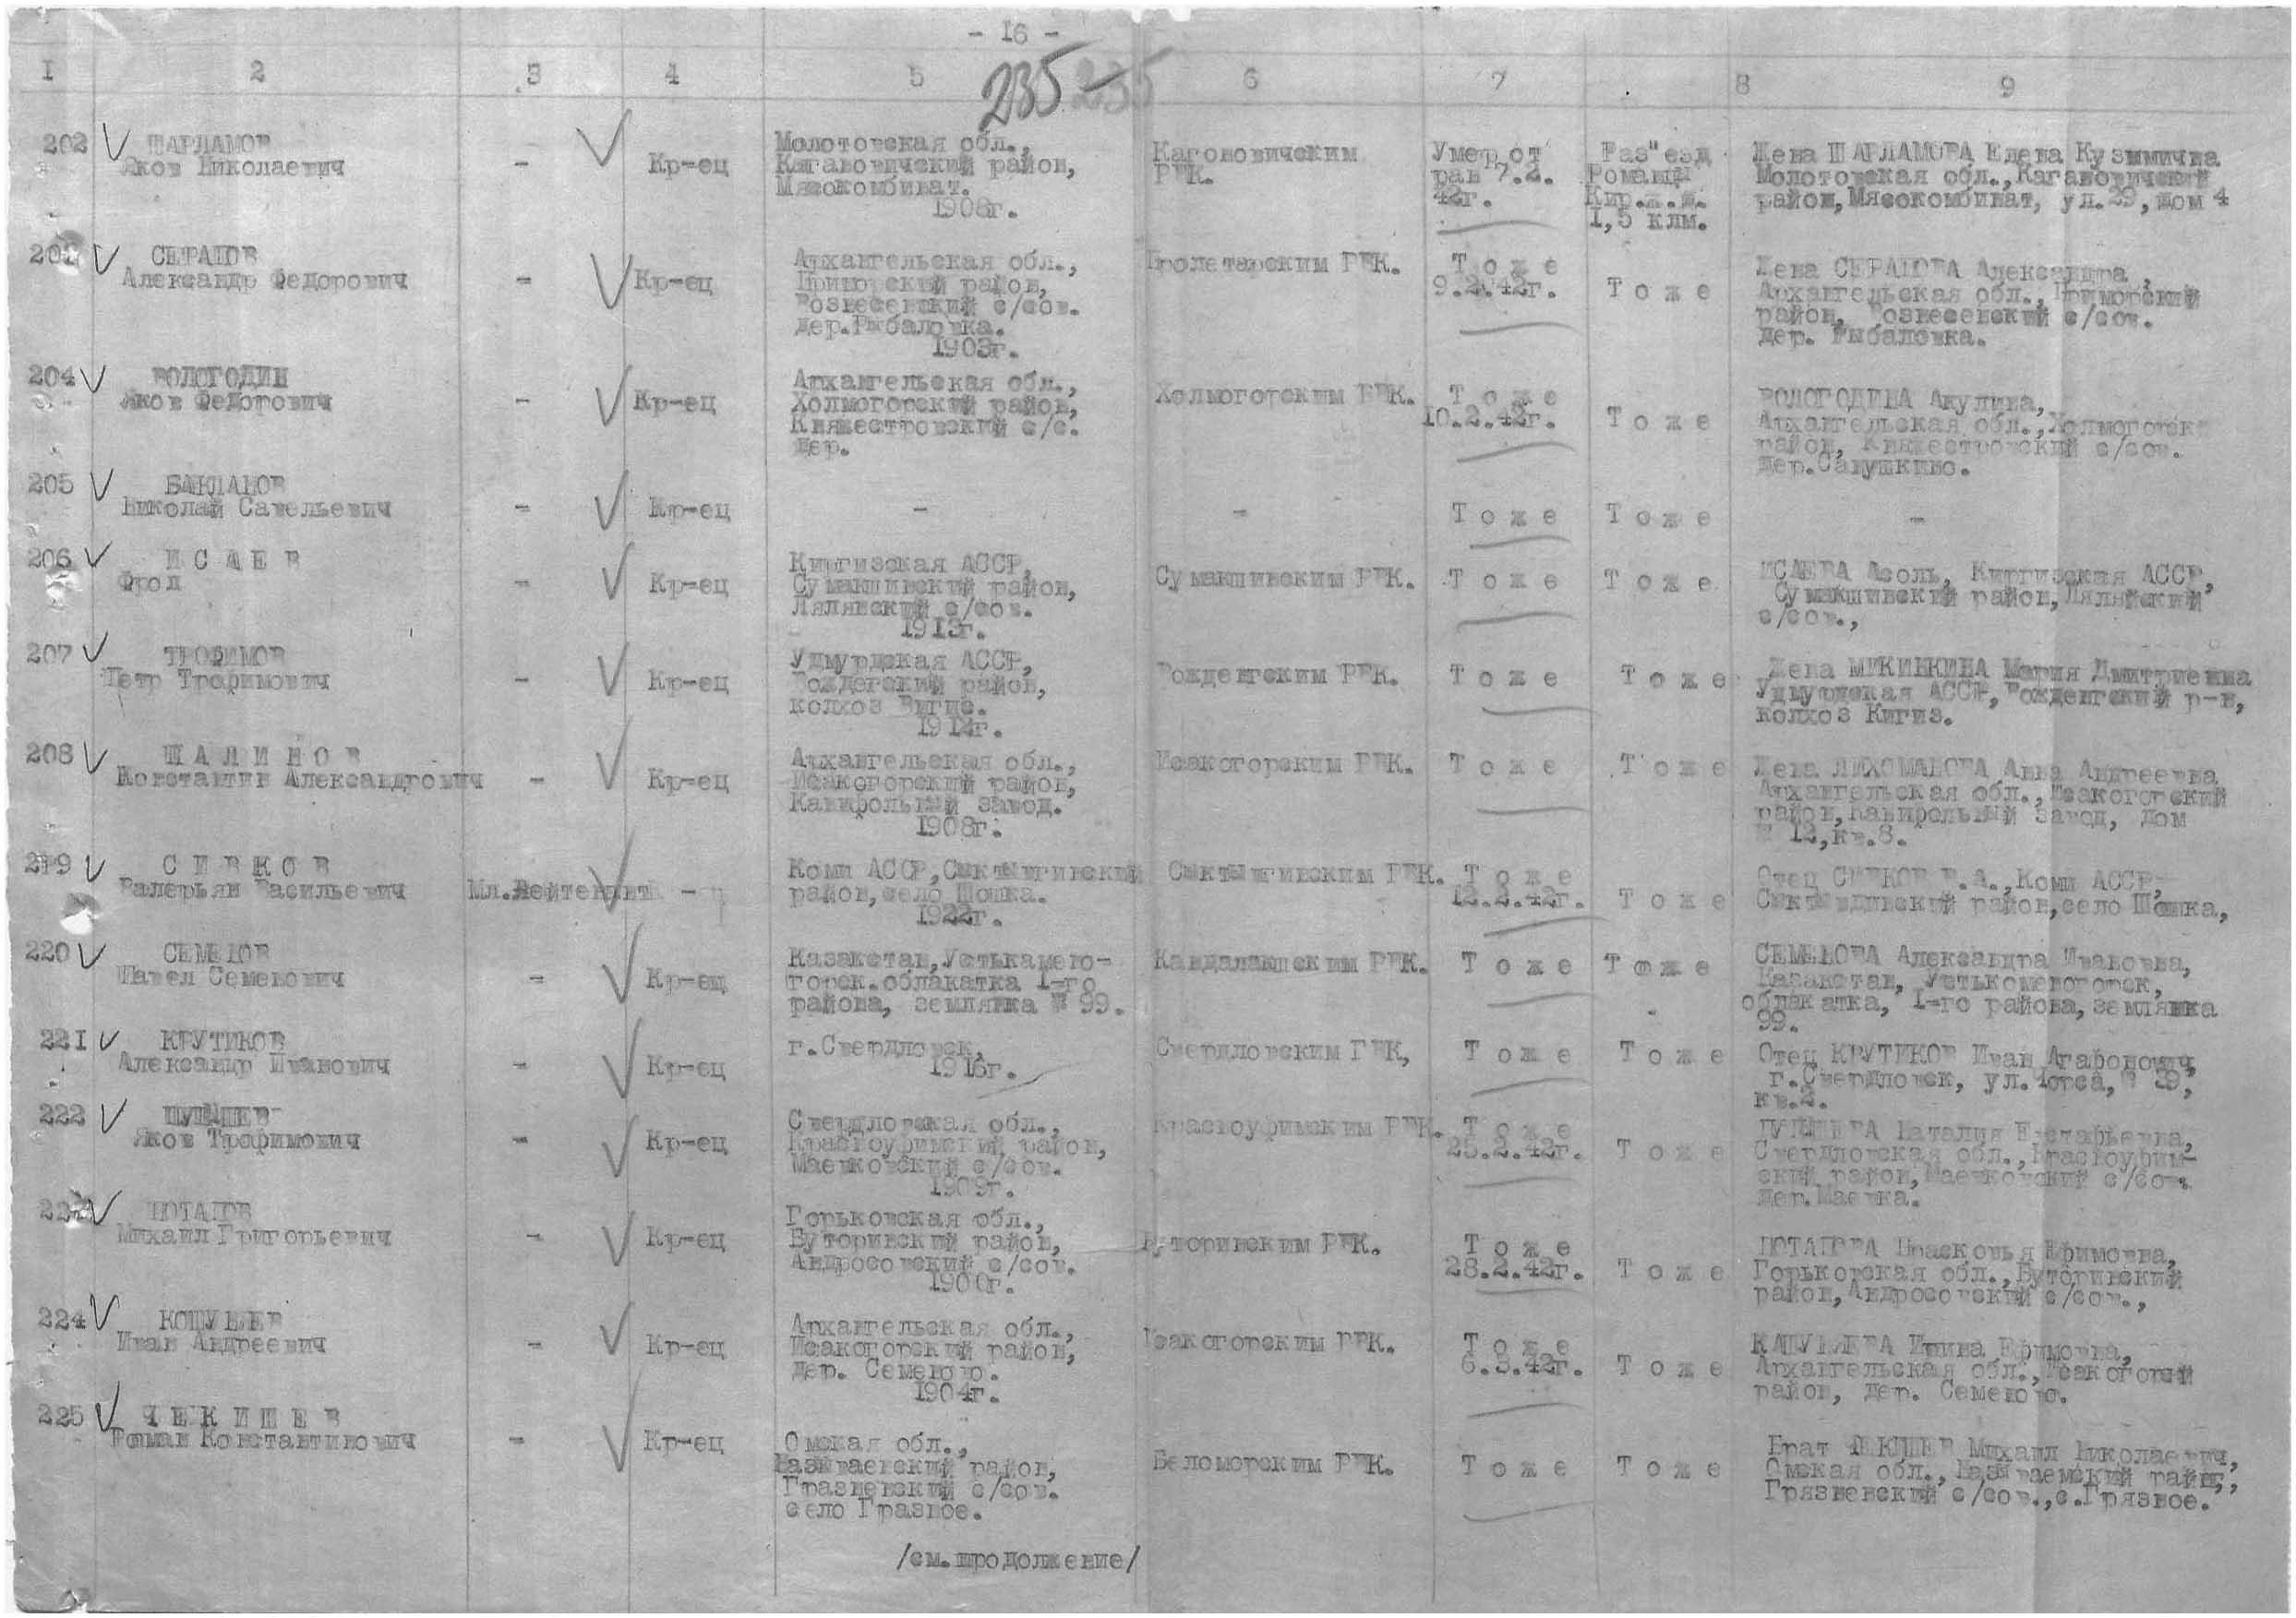 - 16 -
235 235
I 2 3 4 5 6 7 8 9
202 ШАРЛАМОВ
Яков Николаевич
-
Кр-ец
Молотовская обл.,
Кагановичский район,
Мясокомбинат.
1908г.
Кагоновичским
РВК.
Умер от
ран 7.2.
42г.
Раз"езд
Романцы
Кир.ж.д.
1,5 клм.
Жена ШАРЛАМОВА Елена Кузьминична
Молотовская обл., Кагановичский
район, Мясокомбинат, ул.29, дом 4
СЕРАПОВ
Александр Федорович
-
Кр-ец
Архангельская обл.,
Приморский район,
Вознесенский с/сов.
дер.Рыбаловка.
1903г.
Пролетарским РВК.
Т о ж е
9.2.42г.
Т о ж е
Жена СЕРАПОВА Александра,
Архангельская обл., Приморский
район, Вознесенский с/сов.
дер. Рыбаловка.
204 ВОЛОГОДИН
Яков Федорович
-
Кр-ец
Архангельская обл.,
Холмогорский район,
Княжестровский с/с.
дер.
Холмогорским РВК.
Т о ж е
10.2.42г.
Т о ж е
ВОЛОГОДИНА Акулина,
Архангельская обл., Холмогорск
район, Княжестровский с/сов.
дер.Санушкино.
205 БАКЛАНОВ
Николай Савельевич
-
Кр-ец
-
-
Т о ж е
Т о ж е
-
206 И С А Е В
Фрол
-
Кр-ец
Киргизская АССР,
Сумакшинский район,
Лялянский с/сов.
1913г.
Сумакшинским РВК.
Т о ж е
Т о ж е
ИСАЕВА Асоль, Киргизская АССР,
Сумакшинский район, Ляляйский
с/сов.,
207 ТРОФИМОВ
Петр Трофимович
-
Кр-ец
Удмурдская АССР,
Вождегский район,
колхоз Вигис.
1914г.
Вожденгским РВК.
Т о ж е
Т о ж е
Жена МИКИШКИНА Мария Дмитриевна
Удмурдская АССР, Вожденгский р-н,
колхоз Кигиз.
208 Ш А Л И Н О В
Константин Александрович
-
Кр-ец
Архангельская обл.,
Исакогорский район,
Канифольный завод.
1908г.
Исакогорским РВК.
Т о ж е
Т о ж е
Жена ЛИХОМАНОВА Анна Андреевна
Архангельская обл., Исакогорский
район, Канифольный завод, дом
№ 12, кв.8.
219 С И В К О В
Валерьян Васильевич
Мл.Лейтенант
-
Коми АССР, Сыктывгивский
район, село Шошка.
1922г.
Сыктывгивским РВК.
Т о ж е
12.2.42г.
Т о ж е
Отец СИВКОВ В.А., Коми АССР,
Сыктывдивский район, село Шошка,
220 СЕМЕНОВ
Павел Семенович
-
Кр-ец
Казакстан, Устькамено-
горск. облакатка 1-го
района, землянка № 99.
Кандалакшским РВК.
Т о ж е
Т о ж е
СЕМЕНОВА Александра Ивановна,
Казакстан, Устькоменогорск,
облакатка, 1-го района, землянка
99.
221 КРУТИКОВ
Александр Иванович
-
Кр-ец
г.Свердловск,
1916г.
Свердловским ГВК,
Т о ж е
Т о ж е
Отец КРУТИКОВ Иван Агафонович,
г.Свердловск, ул. № 39,
кв.2.
222
Яков Трофимович
-
Кр-ец
Свердловская обл.,
Красноуфимский район,
Маевковский с/сов.
1909г.
Красноуфимским РВК.
Т о ж е
25.2.42г.
Т о ж е
Наталия Евстафьевна,
Свердловская обл., Красноуфим-
ский район, Маевковский с/сов.
дер.Маевка.
ПОТАПОВ
Михаил Григорьевич
-
Кр-ец
Горьковская обл.,
Буторинский район,
Андросовский с/сов.
1900г.
Буторинским РВК.
Т о ж е
28.2.42г.
Т о ж е
ПОТАПОВА Прасковья Ефимовна,
Горьковская обл., Буторинский
район, Андросовский с/сов.,
224 КОШУНЕВ
Иван Андреевич
-
Кр-ец
Архангельская обл.,
Исакогорский район,
дер. Семеново.
1904г.
Исакогорским РВК.
Т о ж е
6.3.42г.
Т о ж е
КАШУНЕВА Ефимовна,
Архангельская обл., Исакогорский
район, дер. Семеново.
225 Ч Е К И Ш Е В
Роман Константинович
-
Кр-ец
Омская обл.,
Называевский район,
Грязневский с/сов.
село Грязное.
Беломорским РВК.
Т о ж е
Т о ж е
Брат ЧЕКИШЕВ Михаил Николаевич,
Омская обл., Называемский район,
Грязневский с/сов., с.Грязное.
/см.продолжение/